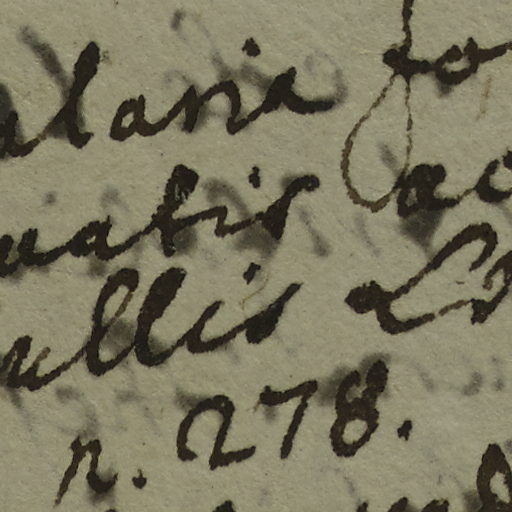 alaria fo
uatis ac
ullis
n. 278.